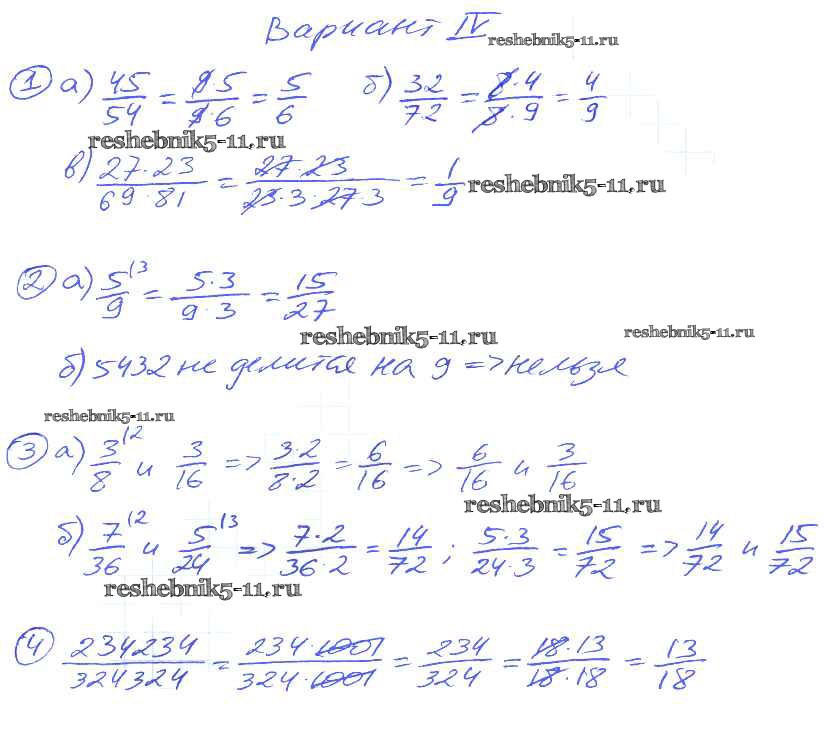 Вариант IV reshebnik5-11.ru
① а) 45/54 = 9·5/9·6 = 5/6 б) 32/72 = 8·4/8·9 = 4/9
reshebnik5-11.ru
в) 27·23/69·81 = 27·23/23·3·27·3 = 1/9 reshebnik5-11.ru
② а) 5/9 (3 = 5·3/9·3 = 15/27
reshebnik5-11.ru reshebnik5-11.ru
б) 5432 не делится на 9 => нельзя
reshebnik5-11.ru
③ а) 3/8 (2 и 3/16 => 3·2/8·2 = 6/16 => 6/16 и 3/16
reshebnik5-11.ru
б) 7/36 (2 и 5/24 (3 => 7·2/36·2 = 14/72 ; 5·3/24·3 = 15/72 => 14/72 и 15/72
reshebnik5-11.ru
④ 234234/324324 = 234·1001/324·1001 = 234/324 = 18·13/18·18 = 13/18